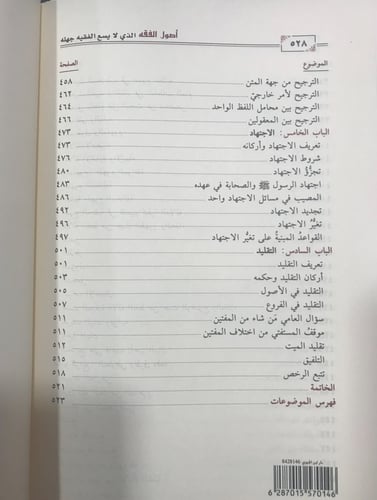 ٥٢٨
أصول الفقه الذي لا يسع الفقيه جهله
الموضوع الصفحة
الترجيح من جهة المتن ٤٥٨
الترجيح لأمر خارجيّ ٤٦٢
الترجيح بين محامل اللفظ الواحد ٤٦٤
الترجيح بين المعقولين ٤٦٦
الباب الخامس: الاجتهاد ٤٧٣
تعريف الاجتهاد وأركانه ٤٧٣
شروط الاجتهاد ٤٧٦
تجزُّؤ الاجتهاد ٤٨٠
اجتهاد الرسول ﷺ والصحابة في عهده ٤٨٣
المصيب في مسائل الاجتهاد واحد ٤٨٦
تجديد الاجتهاد ٤٩٢
تغيُّر الاجتهاد ٤٩٦
القواعدُ المبنيةُ على تغيُّر الاجتهاد ٤٩٧
الباب السادس: التقليد ٥٠١
تعريف التقليد ٥٠١
أركان التقليد وحكمه ٥٠٣
التقليد في الأصول ٥٠٥
التقليد في الفروع ٥٠٧
سؤال العامي مَن شاء من المفتين ٥١١
موقفُ المستفتي من اختلاف المفتين ٥١١
تقليد الميت ٥١٢
التلفيق ٥١٥
تتبع الرخص ٥١٨
الخاتمة ٥٢١
فهرس الموضوعات ٥٢٣
8428146
6 287015 570146